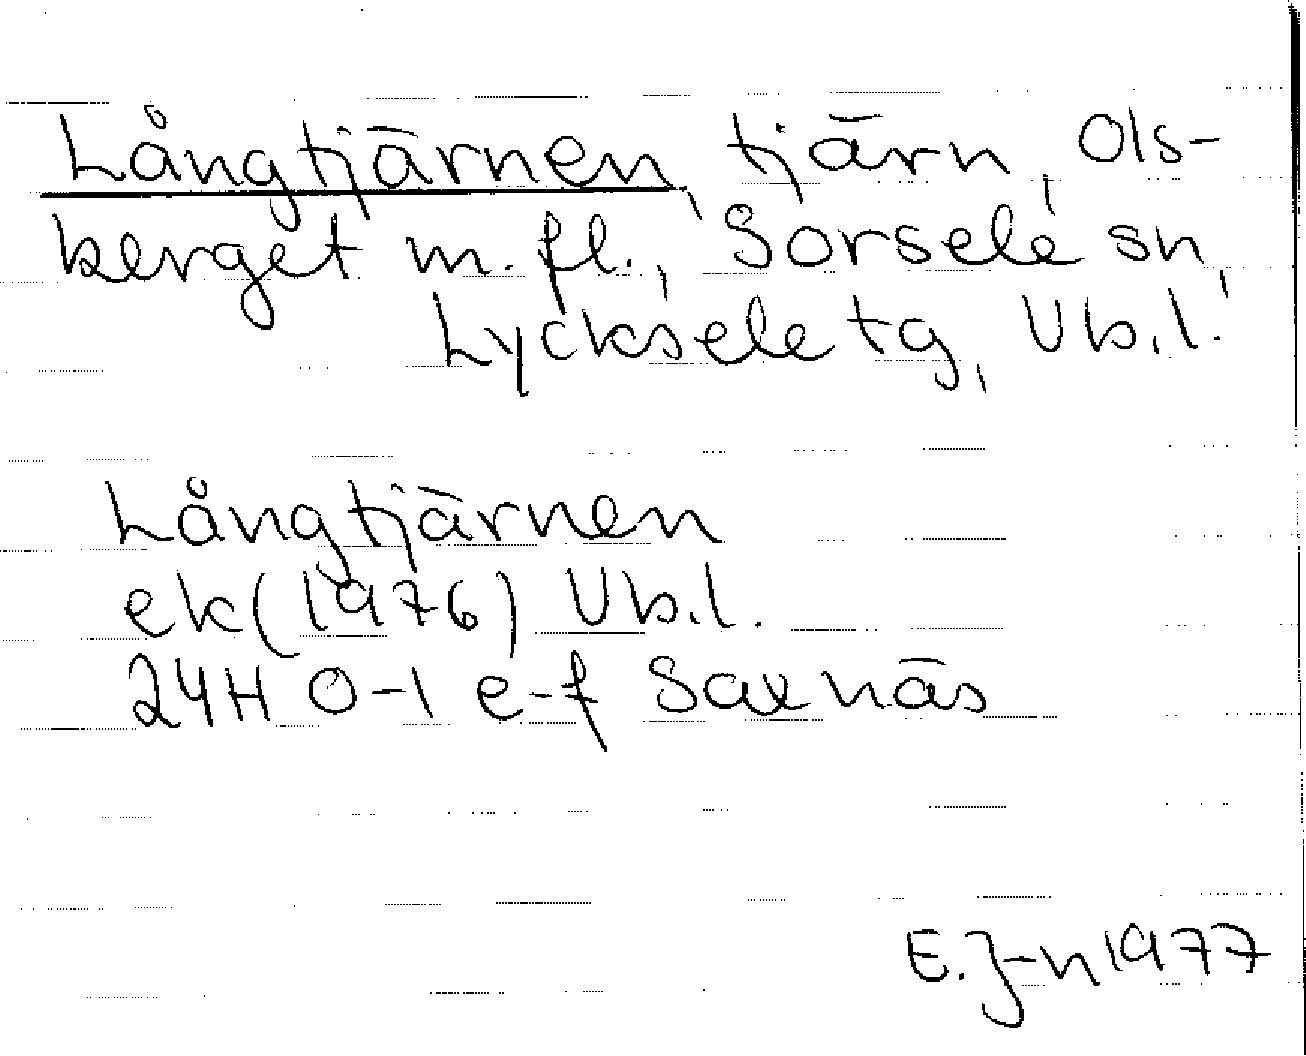 Långtjärnen, tjärn, Ols-
berget m. fl., Sorsele sn,
Lycksele tg, Vb.l.
Långtjärnen
ek (1976) Vb.l.
24H 0-1 e-f Saxnäs
E. J-n 1977